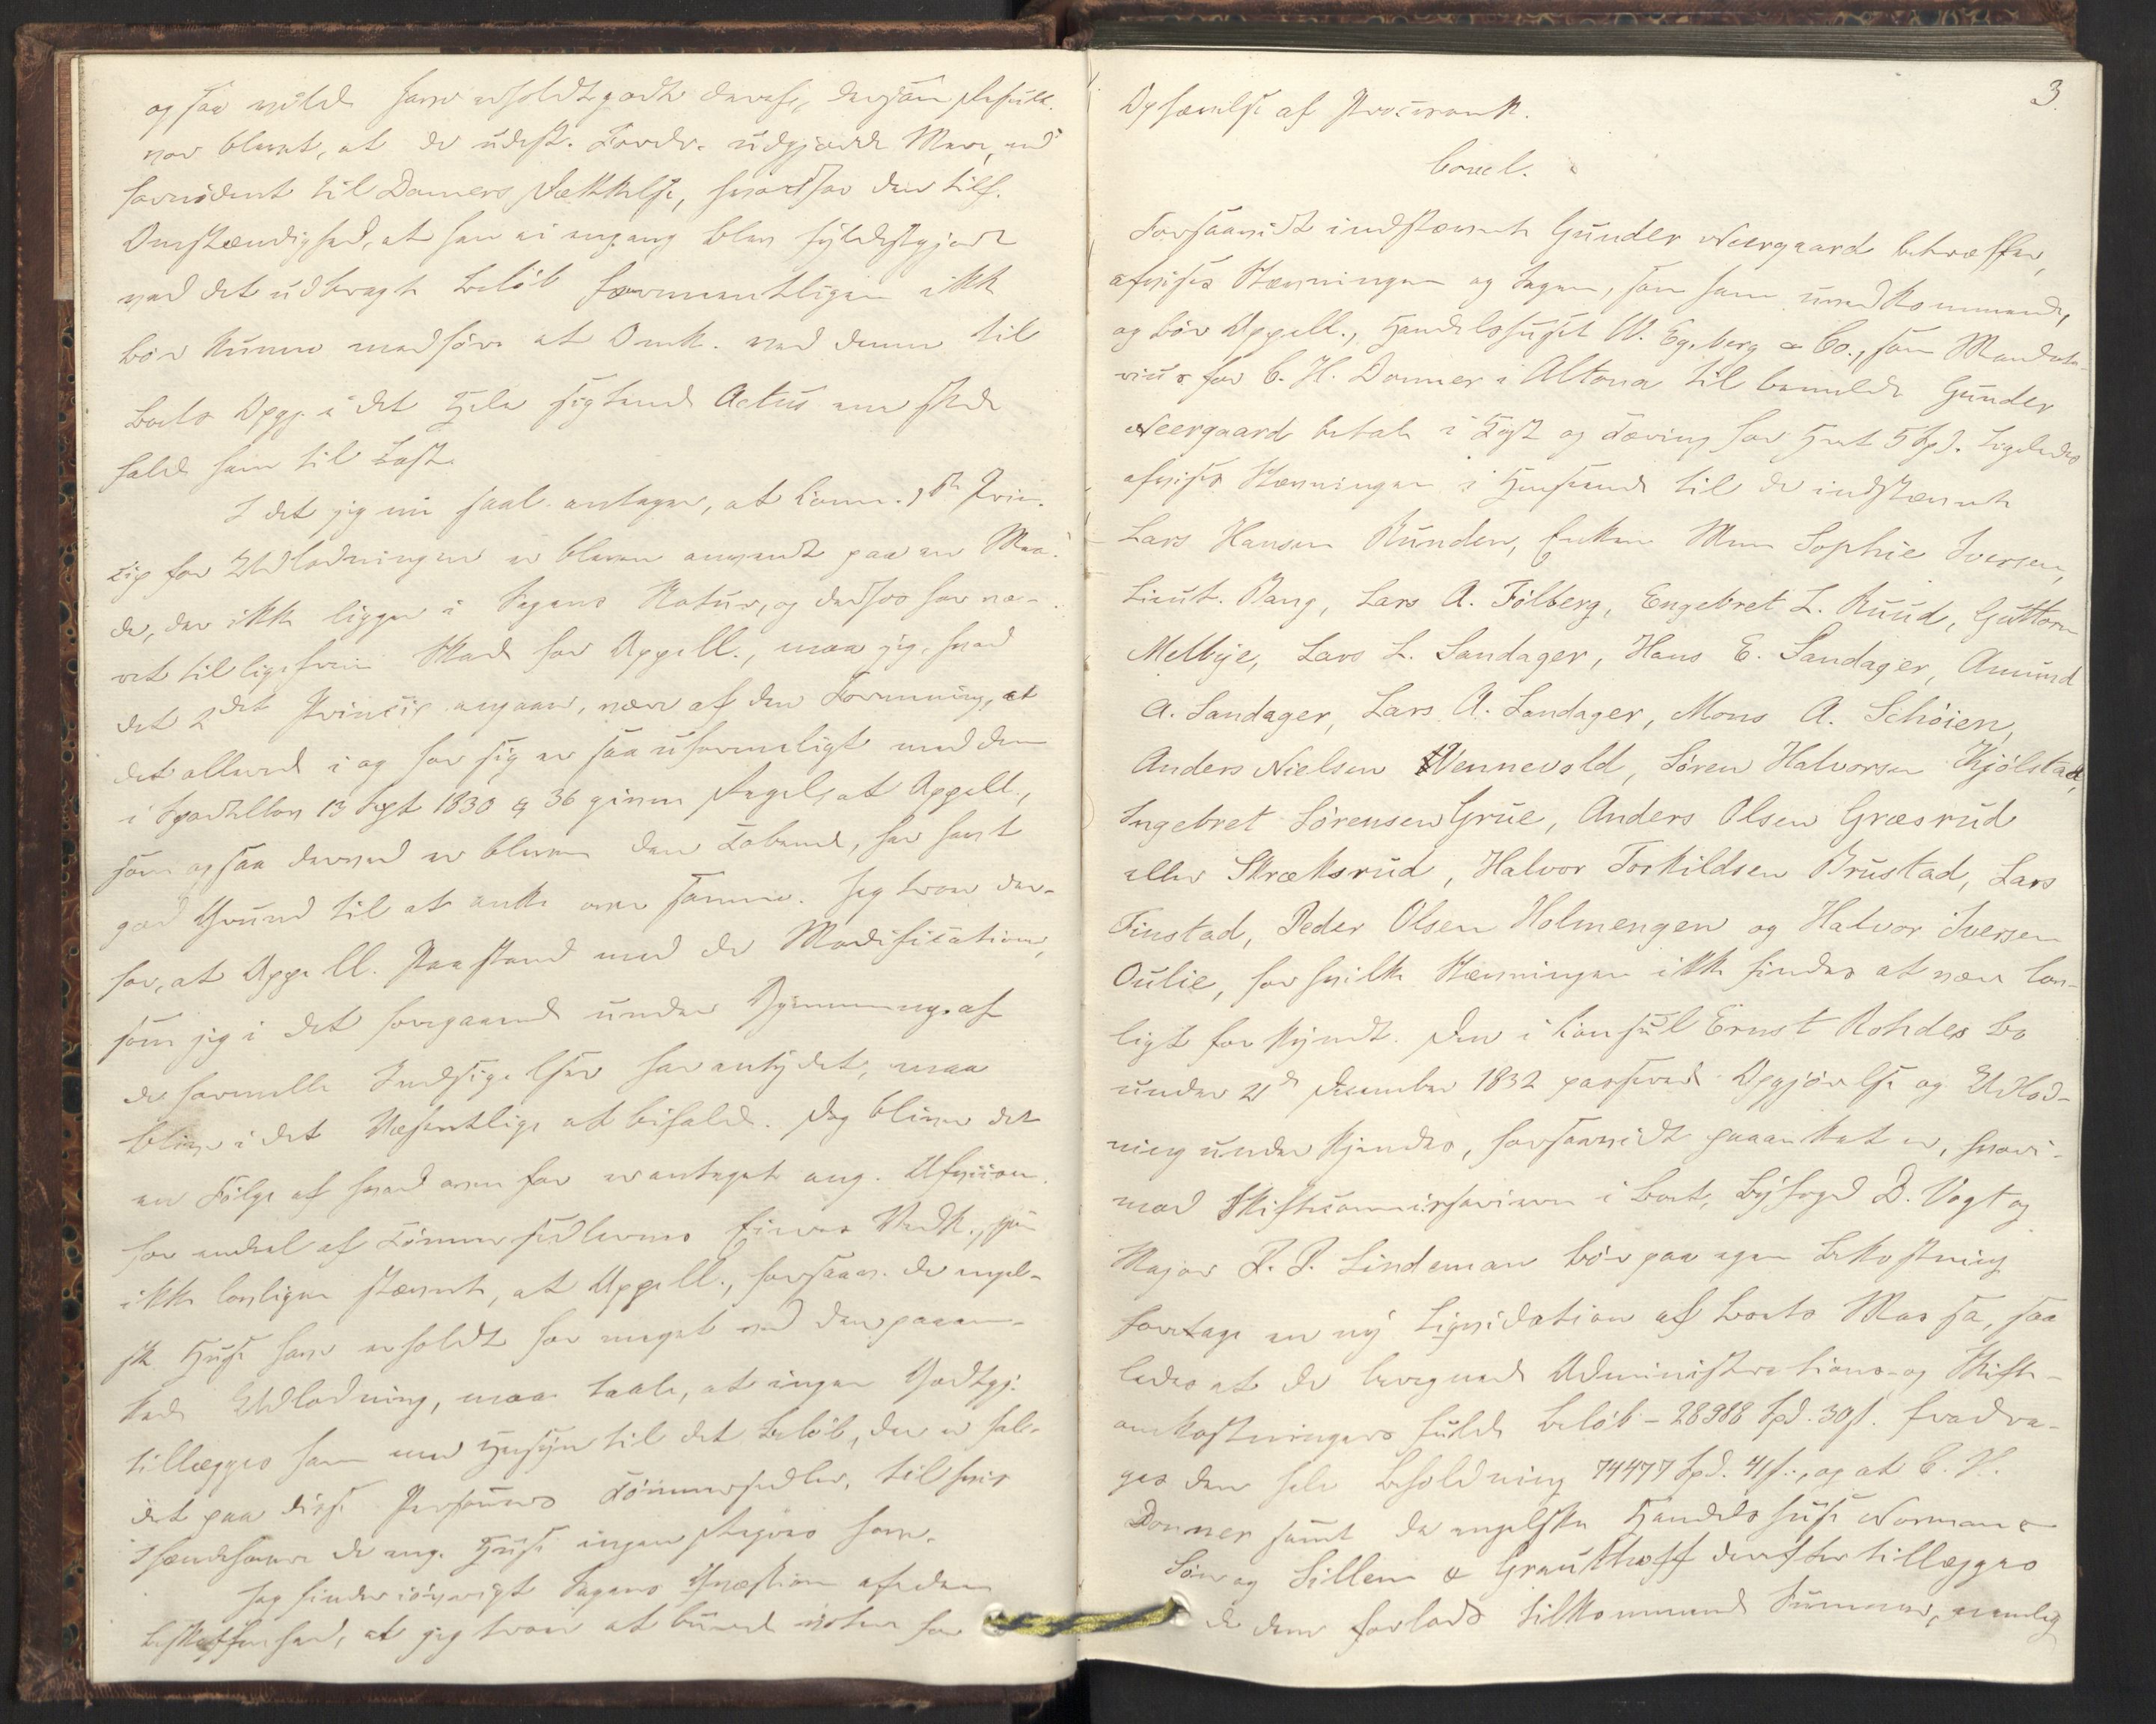 og saa vilde have erholdt godt derefter, dersom Result.
var blevet, at de udest. Fordr. udgjorde Mere, end
fornødent til Donners Dækkelse, hvorfor den tilf.
Omstændighed, at han ei engang blev fyldestgjort
ved det udbragte Beløb formentligen ikke
bør kunne medføre at Omk. ved denne til
Boets Opgj. i det Hele sigtende Actus ene skulde
falde ham til Last.
I det jeg nu saal. antager, at Comm. 1ste Prin-
cip for Udlodningen er bleven anvendt paa en Maa-
de, der ikke ligger i Sagens Natur, og derfor har væ-
ret til ligefrem Skade for Appell., maa jeg, hvad
det 2det Princip angaaer, være af den Formening, at
det allerede i og for sig er saa uformeligt med den
i Lov 13 Sept 1830 § 36 givne Regel, at Appell.,
som ogsaa derved er bleven den Tabende, har havt
god Grund til at anke over samme. Jeg troer der-
for, at Appell. Paastand med de Modificationer,
som jeg i det foregaaende under Gjennemgaaelse af
de formelle Indsigelser har antydet, maa
blive i det Væsentlige at bifalde. Dog bliver det
en Følge af hvad oven for er antaget ang. Afviisn.
for endeel af Tømmersedlernes Eieres Vedk., som
ikke lovligen stævnte, at Appell., forsaav. de engel-
ske Huse have erholdt for meget ved den paaan-
kede Udlodning, maa taale, at ingen Godtgj.
tillægges ham med Hensyn til det Beløb, der er fal-
det paa disse Personers Tømmersedler, til hvis
Ihændehavere de eng. Huse ingen Regres have.
Jeg finder iøvrigt Sagens Qvæstion af den
Beskaffenhed, at jeg troer at burde votere for
3.
Ophævelse af Processomk.
Concl.
Forsaavidt indstævnte Gunder Neergaard betræffer,
afvises Stævningen og Sagen, som ham uvedkommende,
og bør Appell., Handelshuset W. Egeberg & Co., som Mandata-
rius for C. H. Donner i Altona til bemeldte Gunder
Neergaard betale i Kost og Tæring for Hret 5 Spd. Ligeledes
afvises Stævningen i Henseende til de indstævnte
Lars Hansen Runden, Enken Mm Sophie Iversen,
Lieut. Bang, Lars A. Fölberg, Engebret L. Ruud, Guttorm
Melbye, Lars L. Sandager, Hans E. Sandager, Amund
A. Sandager, Lars A. Sandager, Mons A. Schøien,
Anders Nielsen Wennevold, Sören Halvorsen Kjölstad,
Ingebret Sørensen Grue, Anders Olsen Græsrud
eller Skræksrud, Halvor Torkildsen Brustad, Lars
Finstad, Peder Olsen Holmengen og Halvor Iversen
Oulie, for hvilke Stævningen ikke findes at være lov-
ligt forkyndt. Den i Consul Ernst Rohdes Bo
under 21de December 1832 passerede Opgjørelse og Udlod-
ning underkjendes, forsaavidt paaanket er, hvori-
mod Skiftecommissarierne i Boet, Byfoged D. Vogt og
Major J. P. Lindeman bør paa egen Bekostning
foretage en ny Liqvidation af Boets Massa, saa
ledes at de beregnede Administrations- og Skifte-
omkostningers fulde Beløb - 28988 Spd. 30 s. fradra-
ges den hele Beholdning 74477 Spd. 41 s., og at C. H.
Donner samt de engelske Handelshuse Norman &
Søn og Sillem & Grauthoff derefter tillægges
de dem forlods tilkommende Summer, nemlig